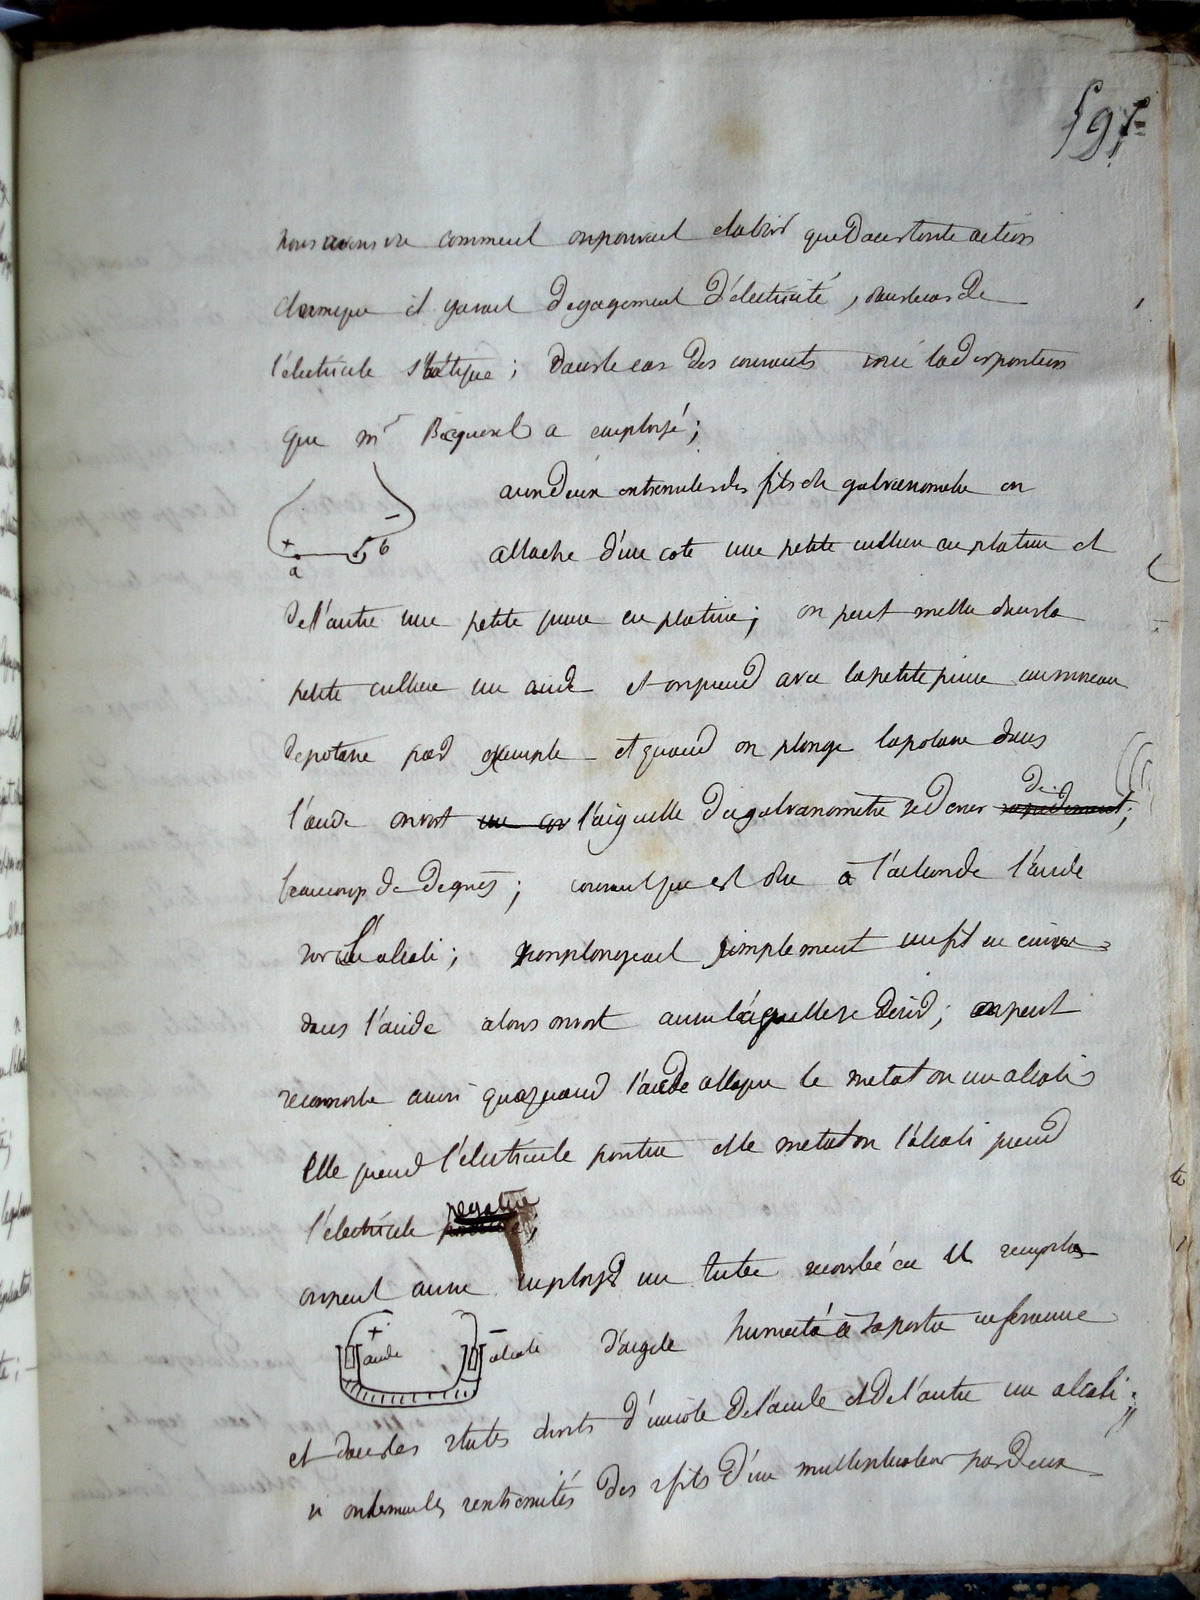 59
nous avons vu comment on pouvait etablir que dans toute action
chimique il y avait degagement d'électricité, dans le cas de
l'électricité statique; dans le cas des courants voici la disposition
que mr Becquerel a employé;
aux deux extremites des fils du galvanometre on
+ a − b
attache d'un coté une petite cuillere en platine et
de l'autre une petite pince en platine; on peut mettre dans la
petite cuillere un acide et on prend avec la petite pince un morceau
de potasse par exemple et quand on plonge la potasse dans
l'acide on voit l'aiguille du galvanometre devier de
beaucoup de degrés; courant qui est due à l'action de l'acide
sur l'alcali; en plongeant simplement un fil en cuivre
dans l'acide alors on voit aussi l'aiguille se devier; on peut
reconnoitre aussi que quand l'acide attaque le metal ou un alcali
elle prend l'électricité positive et le metal ou l'alcali prend
l'électricité negative;
on peut aussi employer un tube recourbé en U remplie
+ acide − alcali d'argile humecté à sa partie inferieure
et dans les 2 tubes droits d'un coté de l'acide et de l'autre un alcali;
si on termine les 2 extremités des 2 fils d'un multiplicateur par deux